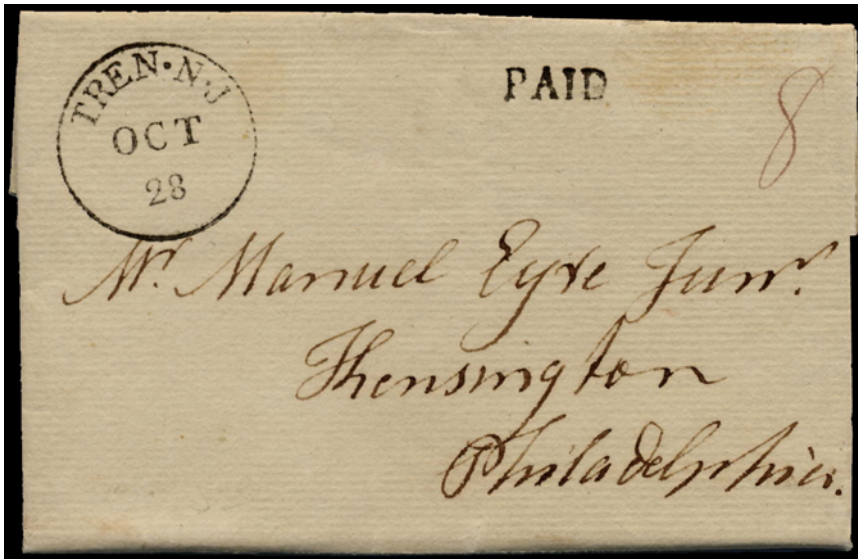 TREN·N·J
OCT
28
PAID
8
Mr. Manuel Eyre Junr.
Kensington
Philadelphia.